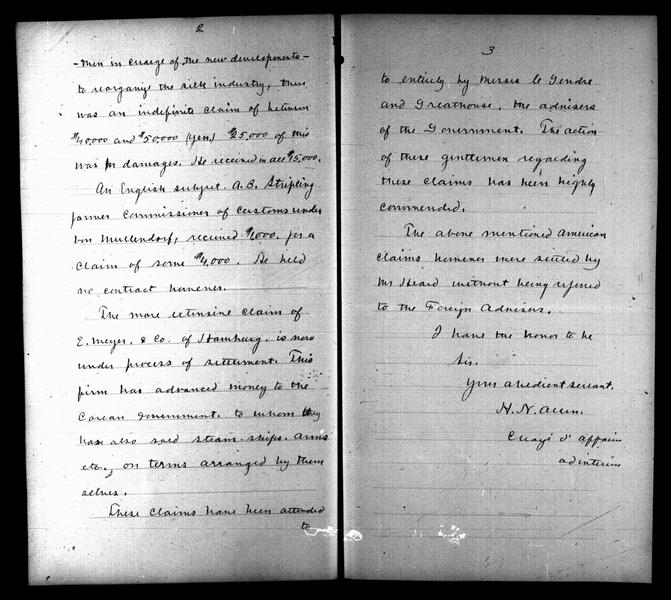 2
-then in charge of the new developments-
to reorganize the silk industry, there
was an indefinite claim of between
$40,000 and $50,000 (yen.) $25,000 of this
was for damages. He received in all $15,000.
An English subject. A.B. Stripling
former Commissioner of Customs under
von Mullendorf, received $1,000. for a
claim of some $4,000. He held
no contract however.
The more extensive claim of
E. Meyer. & Co. of Hamburg. is now
under process of settlement. This
firm has advanced money to the
Corean Government. to whom they
have also sold steam-ships. arms
etc., on terms arranged by them
selves.
These claims have been attended
to
3
to entirely by Messrs le Gendre
and Greathouse, the advisers
of the Government. The action
of these gentlemen regarding
these claims has been highly
commended.
The above mentioned American
claims however were settled by
Mr Heard without being referred
to the Foreign Advisers.
I have the honor to be
Sir.
Your obedient servant.
H. N. Allen.
Chargé d' Affaires
ad interim